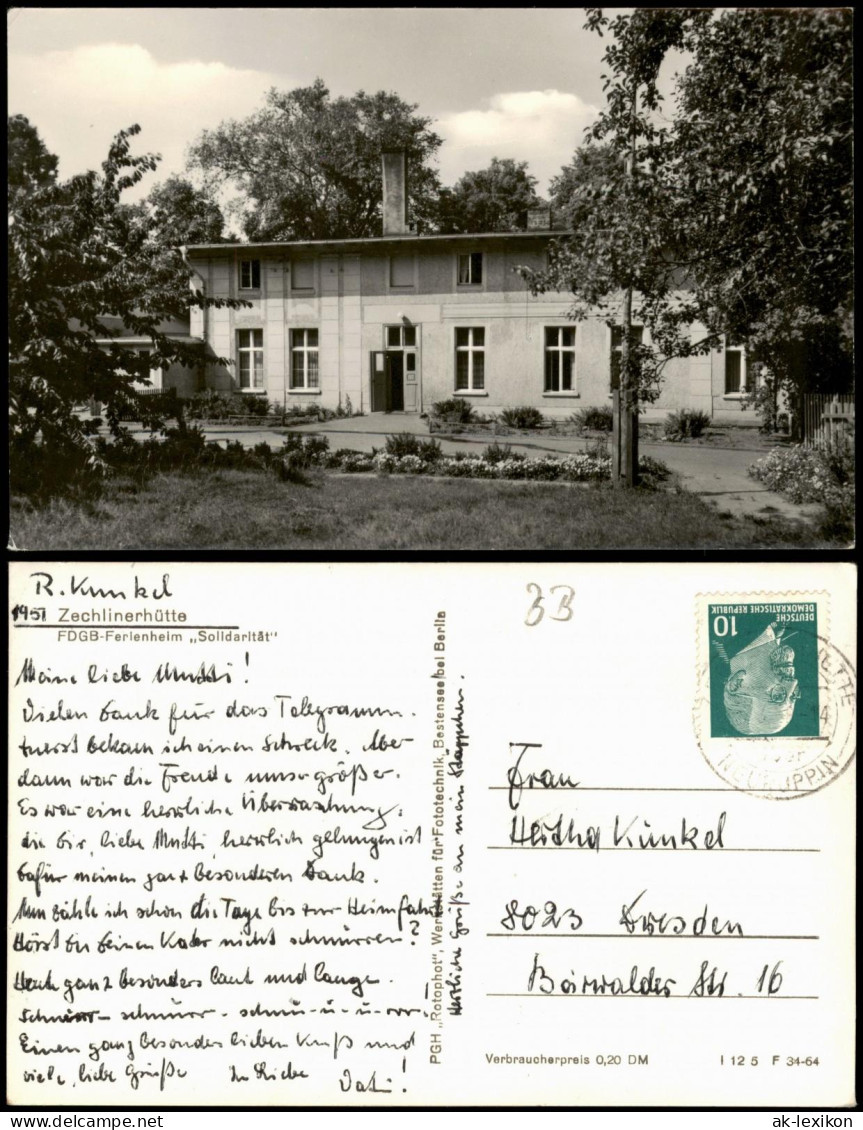 R. Kunkel
1951 Zechlinerhütte
FDGB-Ferienheim „Solidarität"
Meine liebe Mutti!
Vielen Dank für das Telegramm.
Zuerst bekam ich einen Schreck. Aber
dann war die Freude umso größer.
Es war eine herrliche Überraschung,
die Dir, liebe Mutti, herrlich gelungen ist
Dafür meinen ganz besonderen Dank.
Nun zähle ich schon die Tage bis zur Heimfahrt
Hörst Du Deinen Kater nicht schnurren?
Heute ganz besonders laut und lange.
Schnurr - schnurr - schnu-u-u-rrr!
Einen ganz besonders lieben Kuß und
viele, liebe Grüße In Liebe
Vati!
PGH „Rotophot", Werkstätten für Fototechnik, Bestensee bei Berlin
Herzliche Grüße an mein
33
DEUTSCHE DEMOKRATISCHE REPUBLIK
10
NEURUPPIN
Frau
Hertha Kunkel
8023 Dresden
Bärwalder Str. 16
Verbraucherpreis 0,20 DM
I 12 5 F 34-64
ak-lexikon.com